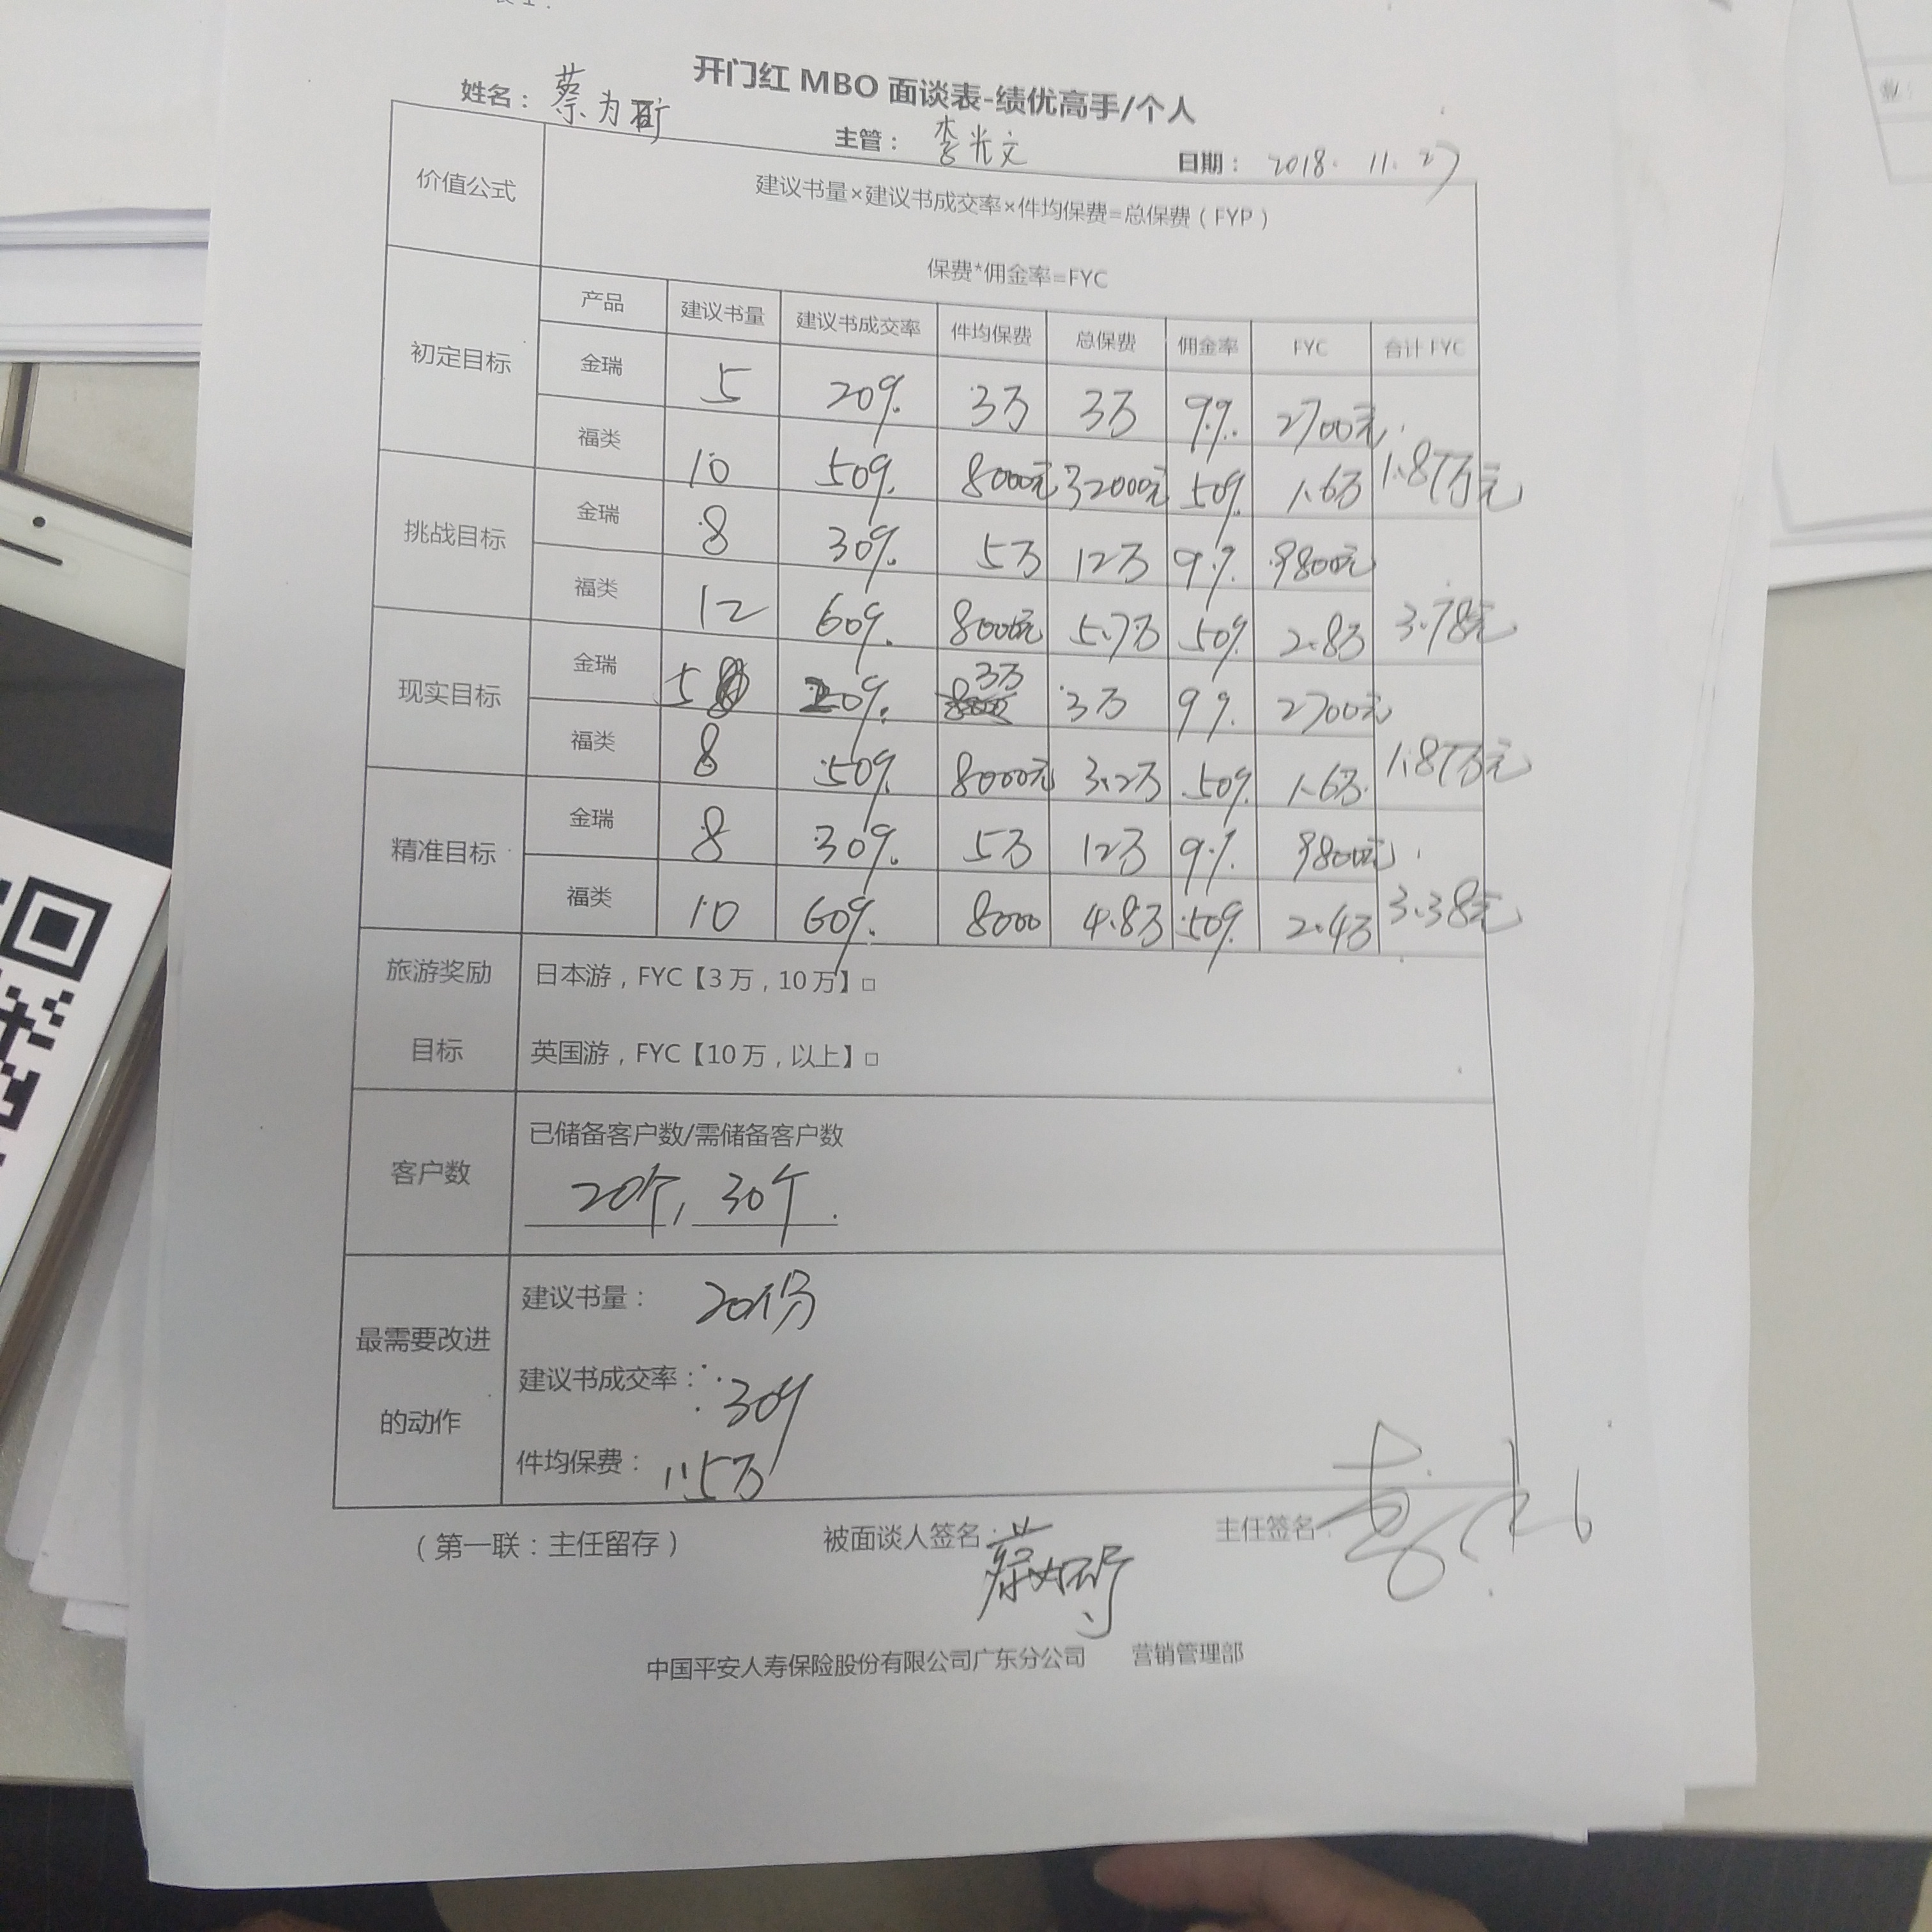 开门红 MBO 面谈表-绩优高手/个人
姓名： 蔡为 主管： 李光文 日期： 2018. 11. 27
价值公式
建议书量×建议书成交率×件均保费=总保费（FYP）
保费*佣金率=FYC
初定目标 产品 建议书量 建议书成交率 件均保费 总保费 佣金率 FYC 合计 FYC
金瑞 5 20% 3万 3万 9% 2700元
福类 10 50% 8000元 32000元 50% 1.6万 1.87万元
挑战目标 金瑞 8 30% 5万 12万 9% 9800元
福类 12 60% 8000元 5.7万 50% 2.8万 3.78元
现实目标 金瑞 5 20% 3万 3万 9% 2700元
福类 8 50% 8000元 3.2万 50% 1.6万 1.87万元
精准目标 金瑞 8 30% 5万 12万 9% 9800元
福类 10 60% 8000 4.8万 50% 2.4万 3.38元
旅游奖励
目标
日本游，FYC【3 万，10 万】□
英国游，FYC【10 万，以上】□
客户数
已储备客户数/需储备客户数
20个, 30个.
最需要改进
的动作
建议书量： 20份
建议书成交率： 30%
件均保费： 1.5万
（第一联：主任留存） 被面谈人签名： 蔡 主任签名：
中国平安人寿保险股份有限公司广东分公司 营销管理部